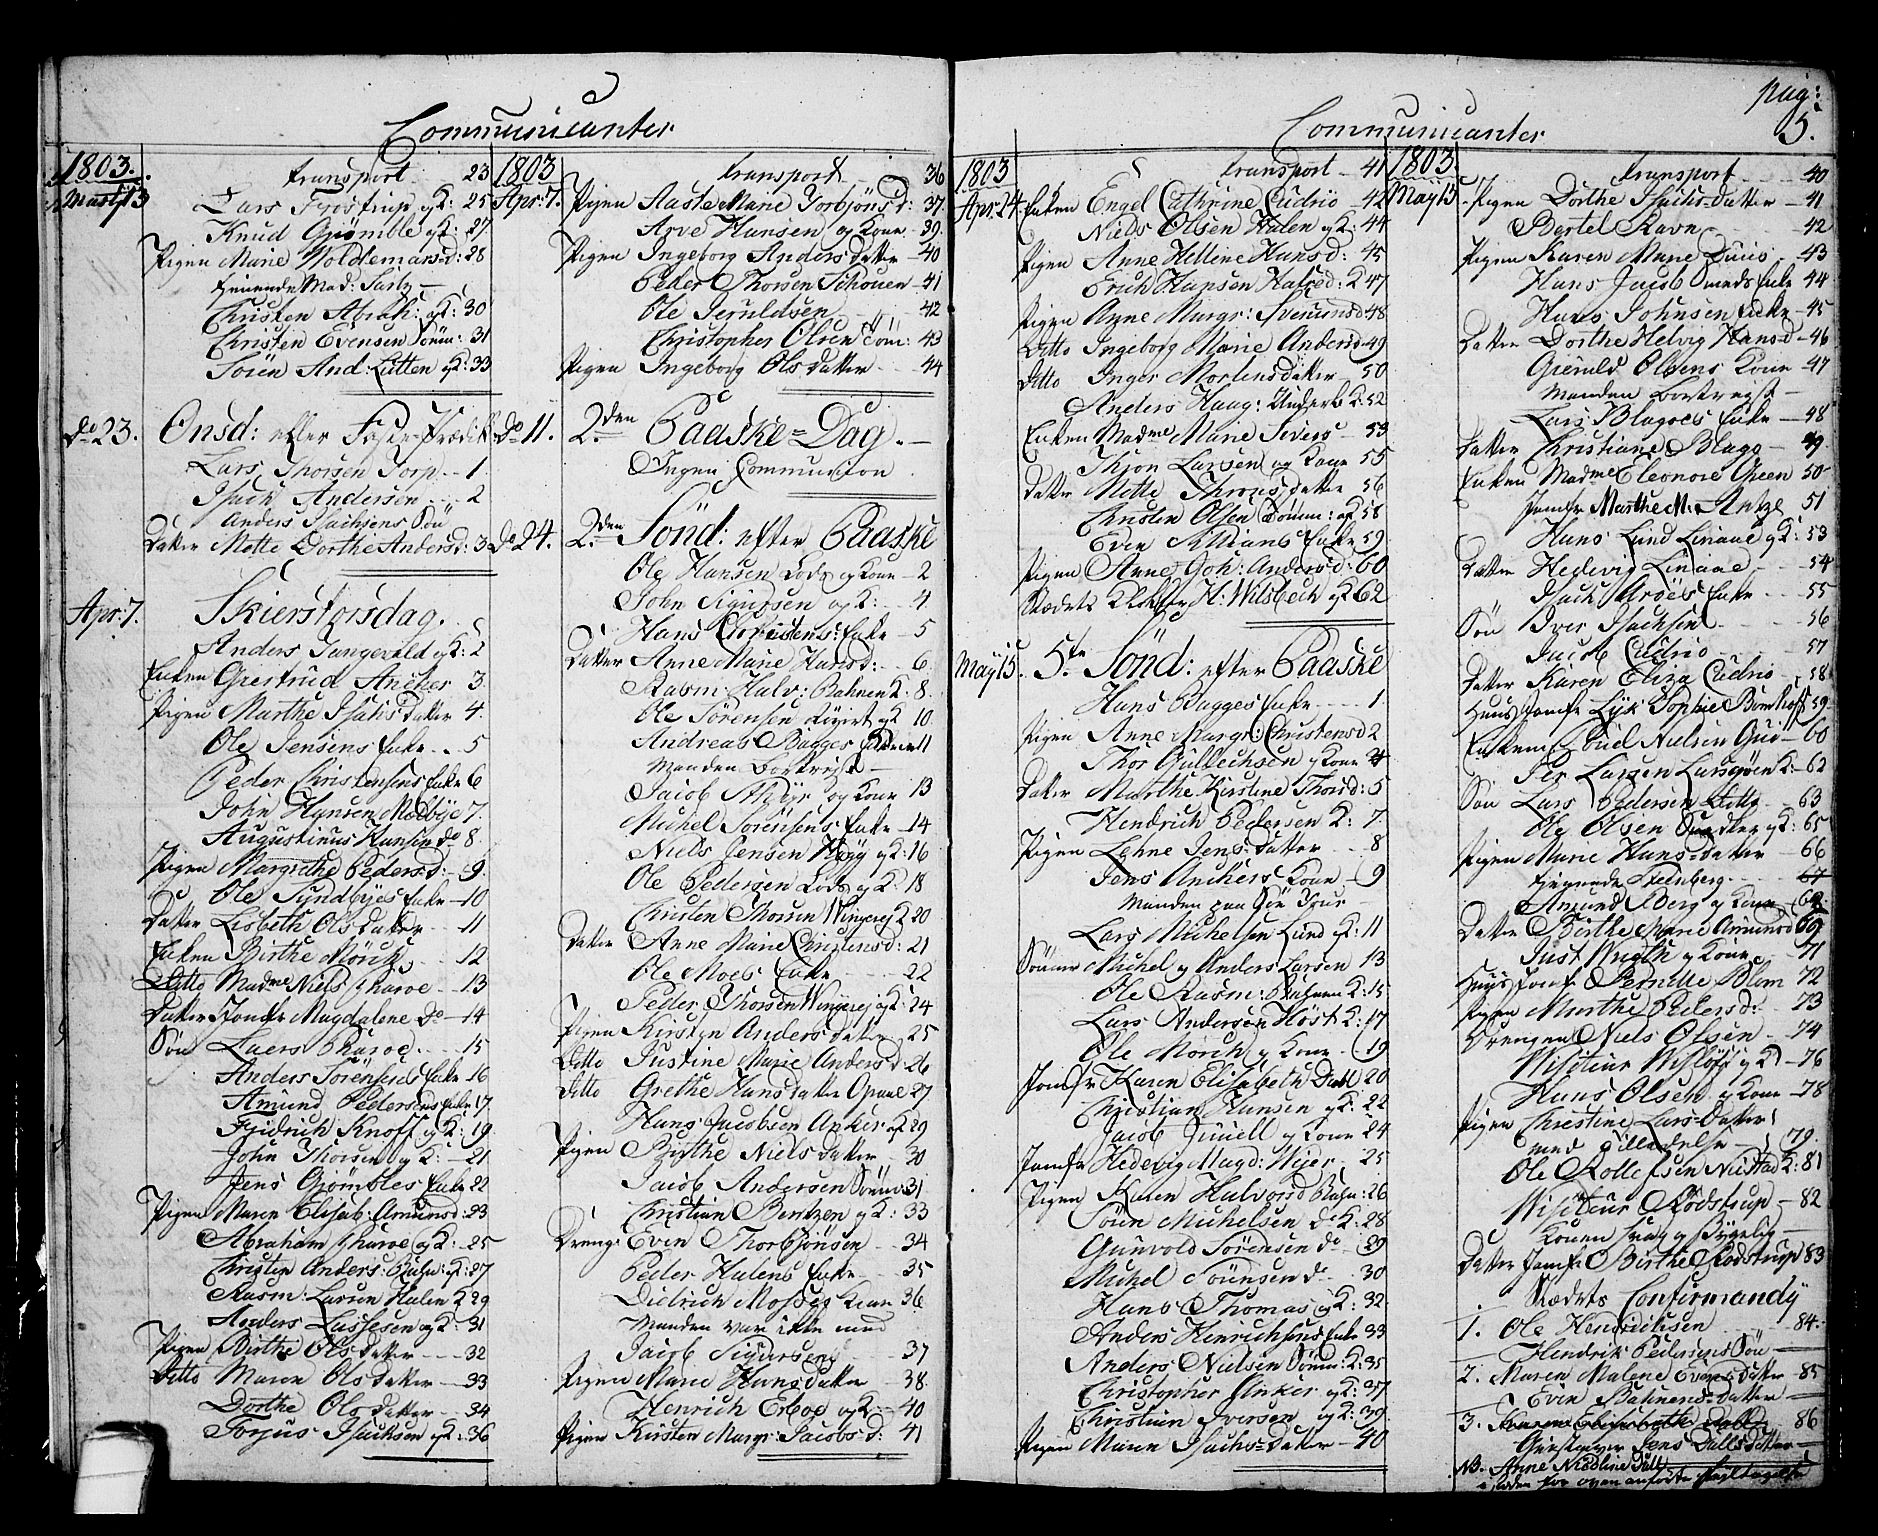 Communicanter
1803.
Marty 13
transport 23
Lars Frostrup og K: 25
Knud Grømble og K: 27
Pigen Marie Woldemarsd: 28
tienende Mad:
Christen Abrah: og K: 30
Christen Evensen Sönn: 31
Sören And: Lutten og K: 33
Do 23. Onsd: efter Faste-Prædik:
Lars Thorsen Torp 1
Isack Andersen 2
Anders Isachsens Sön
Datter Mette Dorthe Andersd: 3
Apr: 7. Skierstorsdag.
Anders Tangevald og K: 2
Enken Giertrud Ancher 3
Pigen Marthe Isaksdatter 4
Ole Jensens Enke 5
Peder Christensens Enke 6
John Hansen Melbye 7
Augustinus Hansen do 8
Pigen Margrethe Pedersd: 9
Ole Syndbyes Enke 10
Datter Lisbeth Olsdatter 11
Enken Birthe Möritz 12
Ditto Madme Niels Pharoe 13
Datter Jomfr Magdalene Do 14
Sön Laers Pharoe 15
Anders Sörensens Enke 16
Amund Pedersens Enke 17
Fridrich Knoff og K: 19
John Thorsen og K: 21
Jens Grömbles Enke 22
Pigen Maren Elisab: Amunds: 23
Abraham Pharoe og K: 25
Christen Anders: Bahn: og K: 27
Rasm: Larsen Halen K 29
Anders Lassesen og K: 31
Pigen Birthe Olsdatter 32
Ditto Maren Olsdatter 33
Dorthe Olsdatter 34
Torjus Isachsen og K: 36
1803
Apr: 7.
transport 36
Pigen Aaste Marie Torbjönsd: 37
Arve Hansen og Kone 39
Pigen Ingeborg Anders datter 40
Peder Thorsen Schouen 41
Ole Jeruldsen 42
Christopher Olsen Töm: 43
Pigen Ingeborg Olsdatter 44
Do 11. 2den Paaske-Dag.
Ingen Communion
Do 24. 2den Sönd: efter Paaske
Ole Hansen Lods og Kone 2
John Sigursen og K: 4
Hans Christens: Enke 5
Datter Anne Marie Hansd: 6
Rasm: Halv: Bahnen K: 8
Ole Sörensen og K 10
Andreas Bagges Kone 11
Manden Bortreist
Jacob og Kone 13
Michel Sörensens Enke 14
Niels Jensen og K: 16
Ole Pedersen Lods og K: 18
Christen Thorsen Wingerej K 20
Datter Anne Marie Christensd: 21
Ole Moes Enke 22
Peder Thorsen Wingerej og K: 24
Pigen Kirsten Anders datter 25
Ditto Justine Marie Andersd 26
Ditto Grethe Hansdatter 27
Hans Jacobsen Anker og K 29
Pigen Birthe Niels datter 30
Jacob Andersen Sönn 31
Christian Bentzen og K: 33
Dreng: Even Thorbjönsen 34
Peder Halens Enke 35
Didrich Kone 36
Manden var ikke med
Jacob Sigursen 37
Pigen Marie Hansdatter 38
Henrich Erboe og K: 40
Pigen Kirsten Margr: Jacobs-d: 41
pag:
5.
Communicanter
1803
Apr: 24
transport 41
Enken Engel Cathrine Cudrio 42
Niels Olsen Halen og K: 44
Pigen Anne Helline Hansd: 45
Erich Hansen K 47
Pigen Anne Margr: 48
Ditto Ingeborg Marie Andersd 49
Ditto Inger Mortensdatter 50
Anders Haag: Underb K: 52
Enken Madme Marie Sivers 53
Thjon Larsen og Kone 55
Datter Mette Throns datter 56
Christen Olsen Tömm: og 58
Even Enke 59
Pigen Anne Joh: Andersd: 60
Stædets Klokker H: Wilsbech og K 62
May 15. 5te Sönd: efter Paaske
Hans Bagges Enke 1
Pigen Anne Margr: Christensd 2
Thor Gullechsen og Kone 4
Datter Marthe Kirstine Thorsd: 5
Hendrich Pedersen K: 7
Pigen Lehne Jens-datter 8
Jens Anchers Kone 9
Manden paa Söe Tour
Lars Michelsen Lund og K: 11
Sönner Michel og Anders Larsen 13
Ole Rasm: Bahnen K: 15
Lars Andersen Höst K: 17
Ole Mörch og Kone 19
Jomfr Karen Elisabeth Dall 20
Christian Hansen og K: 22
Jacob Juuell og Kone 24
Jomfr Hedevig Magd: Wejer 25
Pigen Karen Halvorsd Bahn: 26
Sören Michelsen do K: 28
Gunvold Sörensen do 29
Michel Sörensen do 30
Hans Thomas og K: 32
Anders Hinrichsens Enke 33
Anders Nielsen Tömm: K: 35
Christopher Anker og K: 37
Christian Iversen og K: 39
Pigen Maren Isachs-datter 40
1803
May 15.
transport 40
Pigen Dorthe Isachs-datter 41
Bertel Ravn 42
Pigen Karen Marie 43
Hans Jacob Smeds Enke 44
Hans Johnsen Enke 45
Datter Dorthe Helvig Hansd 46
Gieruld Olsens Kone 47
Manden bortreist
Lars Blagoes Enke 48
Datter Christiane Blago 49
Enken Madme Eleonore Green 50
Jomfr Marthe M: 51
Hans Lund Linaae og K: 53
Datter Hedevig Linaae 54
Isach Aröes Enke 55
Sön Iver Isachsen 56
Jacob Cudrio 57
Datter Karen Eliza Cudrio 58
Huus Jomfr Lyk Sophie Bomhoff 59
Enkem: Poul Nielsen 60
Per Larsen K: 62
Sön Lars Pedersen Ditto 63
Ole Olsen og K: 65
Pigen Marie Hans-datter 66
tienende Steenberg 67
Amund Berg og Kone 68
Datter Birthe Marie Amundsd 69
Just Wrigth og Kone 71
Huus Jomfr Pernille Blom 72
Pigen Marthe Pedersd: 73
Drengen Niels Olsen 74
Wisiteur Wislöff og K 76
Hans Olsen og Kone 78
Pigen Christine Lars-Datter
med Tilladelse 79
Ole Rollefsen Niestad K: 81
Wisiteur Rodstrup 82
Konen svag og Sygelig
Datter Jomfr Birthe Rodstrup 83
Stædets Confirmandy
1. Ole Hendrichsen 84
Hendrik Pedersens Sön
2. Maren Malene Evensdatter 85
Even Bahnens-datter
3. Karen Elisabethe Dall 86
Giestgiver Jens Dalls datter
NB. Anne Nicoline Dall